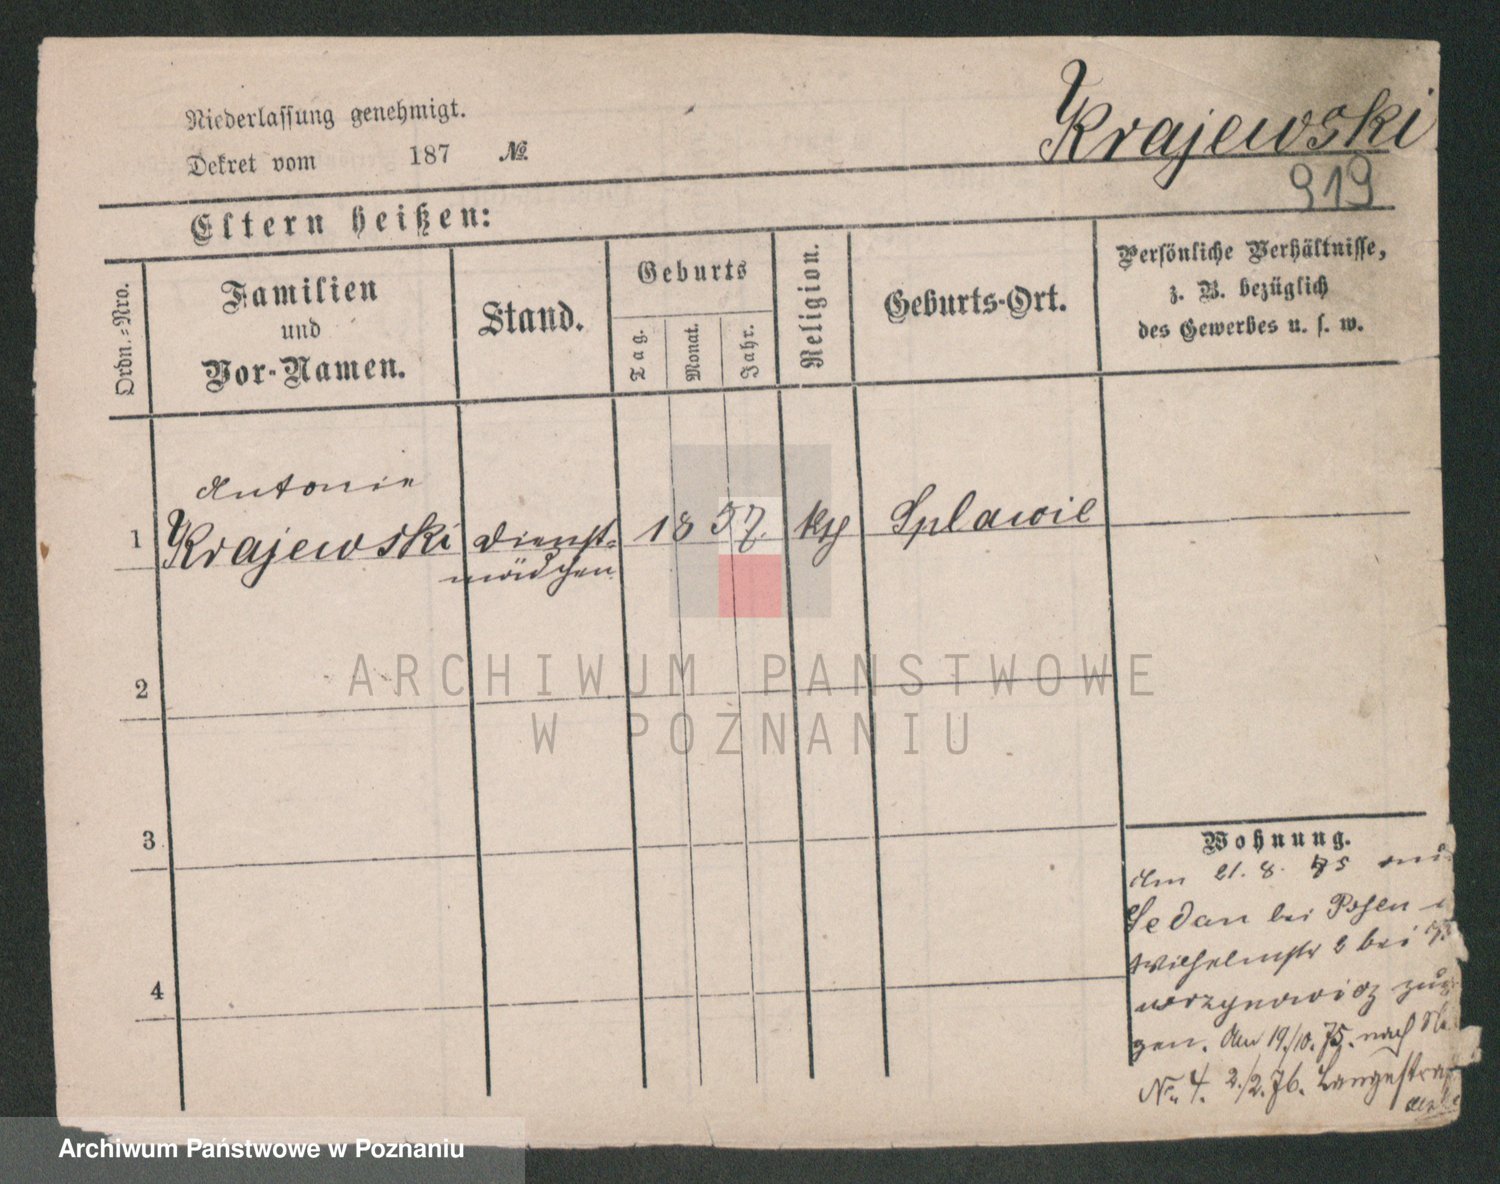 Niederlassung genehmigt.
Krajewski
Dekret vom 187 №
919
Eltern heißen:
Ordn.-Nro.
Familien
und
Vor-Namen.
Stand.
Geburts
Tag.
Monat.
Jahr.
Religion.
Geburts-Ort.
Persönliche Verhältnisse,
z. B. bezüglich
des Gewerbes u. s. w.
Antonie
1 Krajewski Dienst= 18 57. kth Splawie
mädchen
2
ARCHIWUM PAŃSTWOWE
W POZNANIU
3
Wohnung.
Am 21. 8. 75 
Sedan bei Posen
Wilhelmstr 2 bei
gen. Am 19./10. 75. nach
4
No. 4. 2./2. 76.
Archiwum Państwowe w Poznaniu